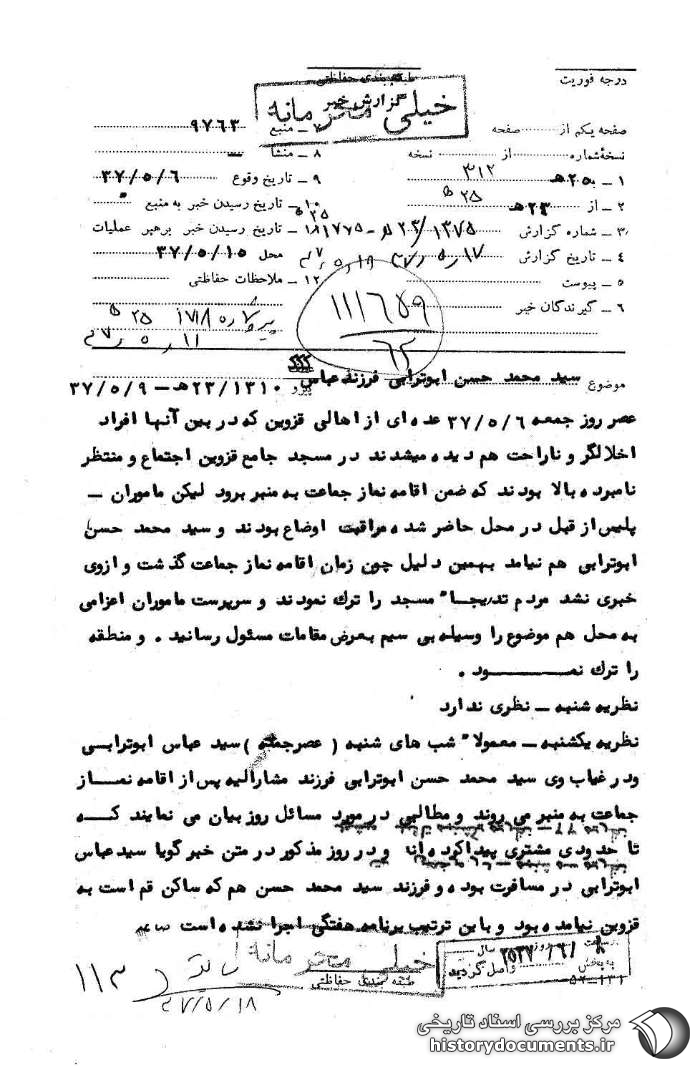 درجه فوریت
طبقه بندی حفاظتی
خیلی محرمانه
گزارش خبر
صفحه یکم از صفحه
۷ ــ منبع ۹۷۶۳
نسخه شماره از نسخه
۸ ــ منشا ــ
۱ ــ به ۲۵۰ هـ ۳۱۲
۹ ــ تاریخ وقوع ۳۷/۵/۶
۲ ــ از ۲۳ هـ ۲۵ هـ
۱۰ ــ تاریخ رسیدن خبر به منبع
۳ ــ شماره گزارش ۲۳/۱۳۷۵
۱۱ ــ تاریخ رسیدن خبر برهبر عملیات
۴ ــ تاریخ گزارش ۳۷/۵/۱۷
محل ۳۷/۵/۱۰
۵ ــ پیوست
۱۲ ــ ملاحظات حفاظتی
۶ ــ گیرندگان خبر
۱۱۱۶۵۹
۶۲
موضوع سید محمد حسن ابوترابی فرزند عباس
پیرو ۲۳/۱۳۱۰ هـ ــ ۳۷/۵/۹
عصر روز جمعه ۳۷/۵/۶ عده ای از اهالی قزوین که در بین آنها افراد
اخلالگر و ناراحت هم دیده میشدند در مسجد جامع قزوین اجتماع و منتظر
نامبرده بالا بودند که ضمن اقامه نماز جماعت به منبر برود لیکن ماموران ــ
پلیس از قبل در محل حاضر شده مراقبت اوضاع بودند و سید محمد حسن
ابوترابی هم نیامد بهمین دلیل چون زمان اقامه نماز جماعت گذشت و ازوی
خبری نشد مردم تدریجا" مسجد را ترک نمودند و سرپرست ماموران اعزامی
به محل هم موضوع را وسیله بی سیم بعرض مقامات مسئول رسانید . و منطقه
را ترک نمـــود .
نظریه شنبه ــ نظری ندارد
نظریه یکشنبه ــ معمولا" شب های شنبه ( عصرجمعه ) سید عباس ابوترابــی
ودر غیاب وی سید محمد حسن ابوترابی فرزند مشارالیه پس از اقامه نمــاز
جماعت به منبر می روند و مطالبی در مورد مسائل روز بیان می نمایند کــه
تا حدودی مشتری پیدا کرده اند و در روز مذکور در متن خبر گویا سید عباس
ابوترابی در مسافرت بوده و فرزند سید محمد حسن هم که ساکن قم است به
قزوین نیامده بود و باین ترتیب برنامه هفتگی اجرا نشده است
خیلی محرمانه
طبقه بندی حفاظتی
روز ۸/۶/۲۵۳۷ سال
به بخش واصل گردید
۱۱۳
۳۷/۵/۱۸
مرکز بررسی اسناد تاریخی
historydocuments.ir